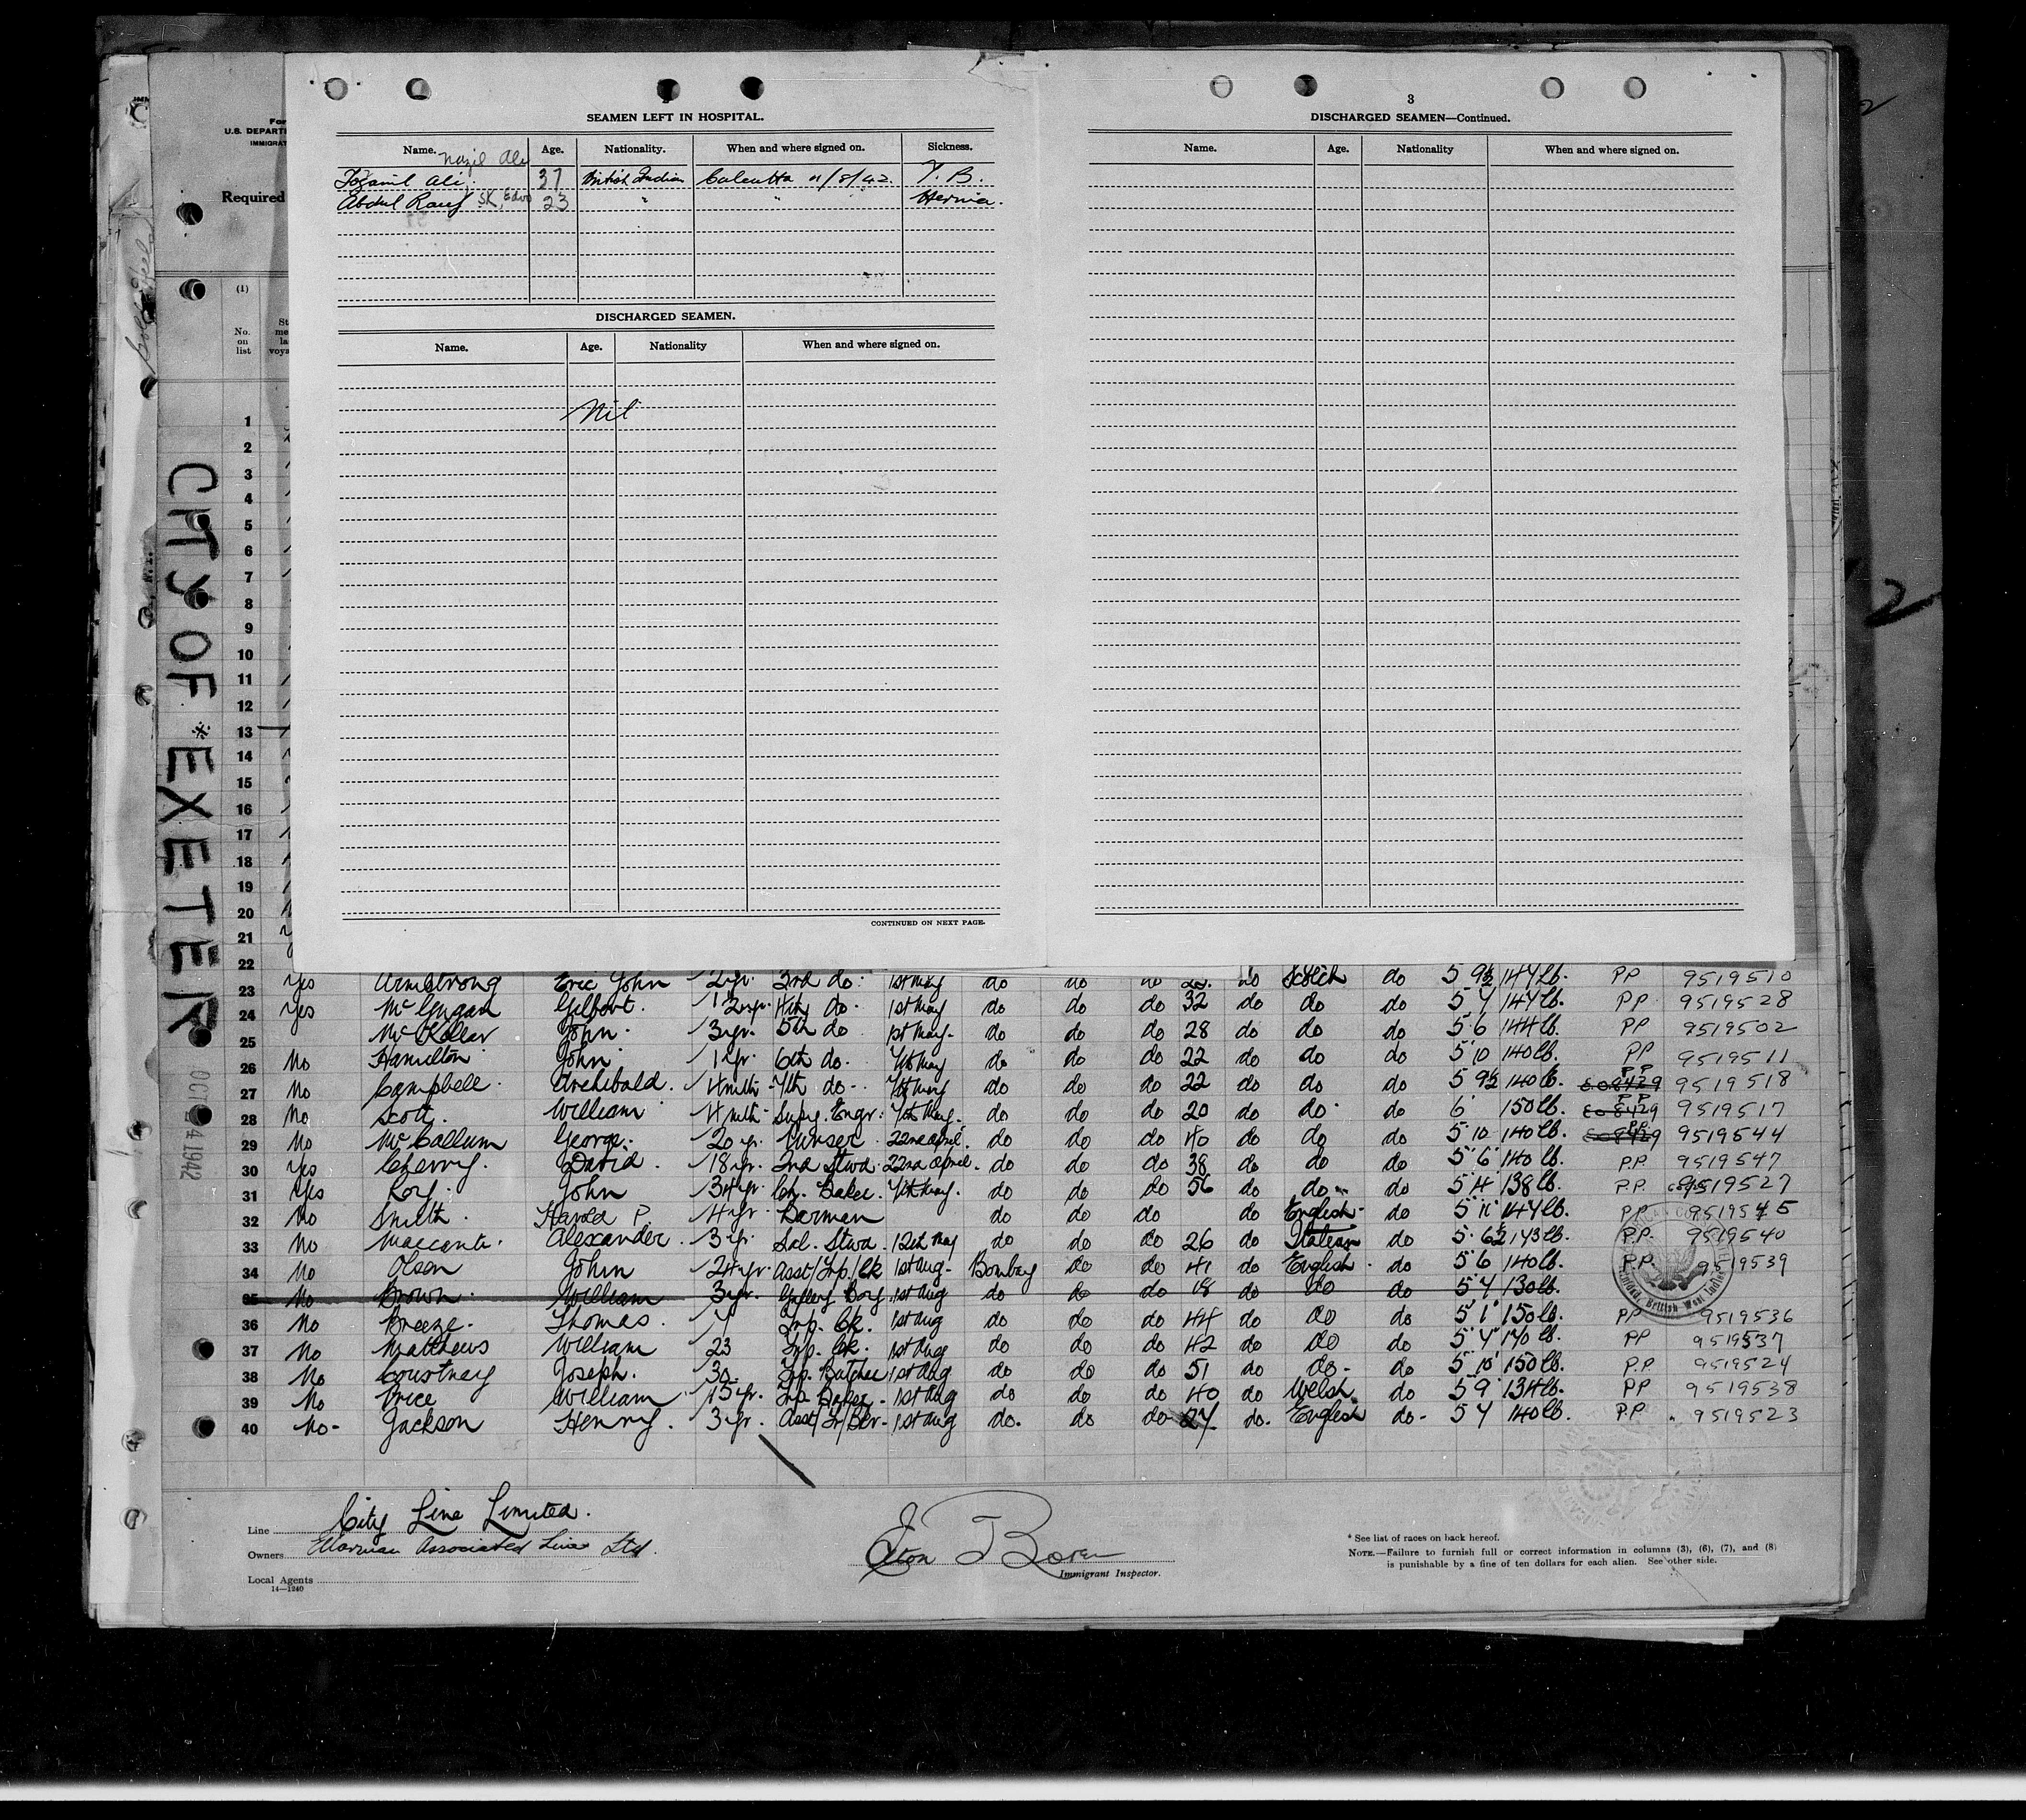 SEAMEN LEFT IN HOSPITAL.
Name. Age. Nationality. When and where signed on. Sickness.
Nazil Ali
Ali. 37 British Indian Calcutta 11/8/42. T.B.
Abdul Rauf SK, 23 " " Hernia.
DISCHARGED SEAMEN.
Name. Age. Nationality When and where signed on.
Nil
CONTINUED ON NEXT PAGE.
3
DISCHARGED SEAMEN—Continued.
Name. Age. Nationality When and where signed on.
For
U.S. DEPART
IMMIGRAT
Required
(1)
No. on list
CITY OF EXETER
OCT 24 1942
1
2
3
4
5
6
7
8
9
10
11
12
13
14
15
16
17
18
19
20
21
22
23 Yes Armstrong Eric John 2yr. 3rd do. 1st May do do do do Scotch do 5 9½ 147 lb. PP 9519510
24 Yes McGugan Gilbert. 4th do. 1st May do do do 32 do do do 5 7 147 lb. PP 9519528
25 McKellar John. 3yr. 5th do 1st May. do do do 28 do do do 5 6 144 lb. PP 9519502
26 No Hamilton John 1yr. 6th do. 7th May do do do 22 do do do 5 10 140 lb. PP 9519511
27 No Campbell. Archibald. 4 mth 7th do. 7th May do do do 22 do do do 5 9½ 140 lb. PP 9519518
28 No Scott. William 4 mth Supy. Engr. 7th May. do do do 20 do do do 6 150 lb. PP 9519517
29 No McCallum George. 20 yr. Purser 22nd April. do do do 40 do do do 5 10 140 lb. PP 9519544
30 Yes Cherry. David. 18yr. 2nd Stwd. 22nd April. do do do 38 do do do 5 6 140 lb. P.P. 9519547
31 Yes Roy. John 34yr. Ch. Baker. 7th May. do do do 56 do do do 5 4 138 lb. P.P. 9519527
32 No Smith. Harold P 4yr. Barman do do do do English do 5 11 147 lb. PP 9519545
33 No Maccanti. Alexander. 3yr. Sal. Stwd. 12th May do do do 26 do Italian do 5 6½ 143 lb. P.P. 9519540
34 No Olson John 24yr. Asst/Trp/Ck 1st Aug. Bombay do do 41 do English. do 5 6 140 lb. P.P. 9519539
35 No Brown. William 3yr. Galley Boy. 1st Aug do do do 18 do do do 5 7 130 lb.
36 No Breeze. Thomas. 7 Trp. Ck. 1st Aug do do do 44 do do do 5 1 150 lb. PP 9519536
37 No Matthews William 23 Trp. Ck. 1st Aug do do do 42 do do do 5 4 140 lb. PP 9519537
38 No Courtney Joseph. 30 Trp. Butcher 1st Aug do do do 51 do do. do 5 10 150 lb. P.P. 9519524
39 No Price William 15yr. Trp Baker. 1st Aug do do do 40 do Welsh do 5 9 134 lb. PP 9519538
40 No. Jackson Henry. 3yr. Asst/Tr/Bkr. 1st Aug do. do do 27 do. English do. 5 7 140 lb. P.P 9519523
Line City Line Limited.
Owners Ellerman Associated Lines Ltd.
Local Agents
14—1240
Immigrant Inspector.
* See list of races on back hereof.
NOTE.—Failure to furnish full or correct information in columns (3), (6), (7), and (8)
is punishable by a fine of ten dollars for each alien. See other side.